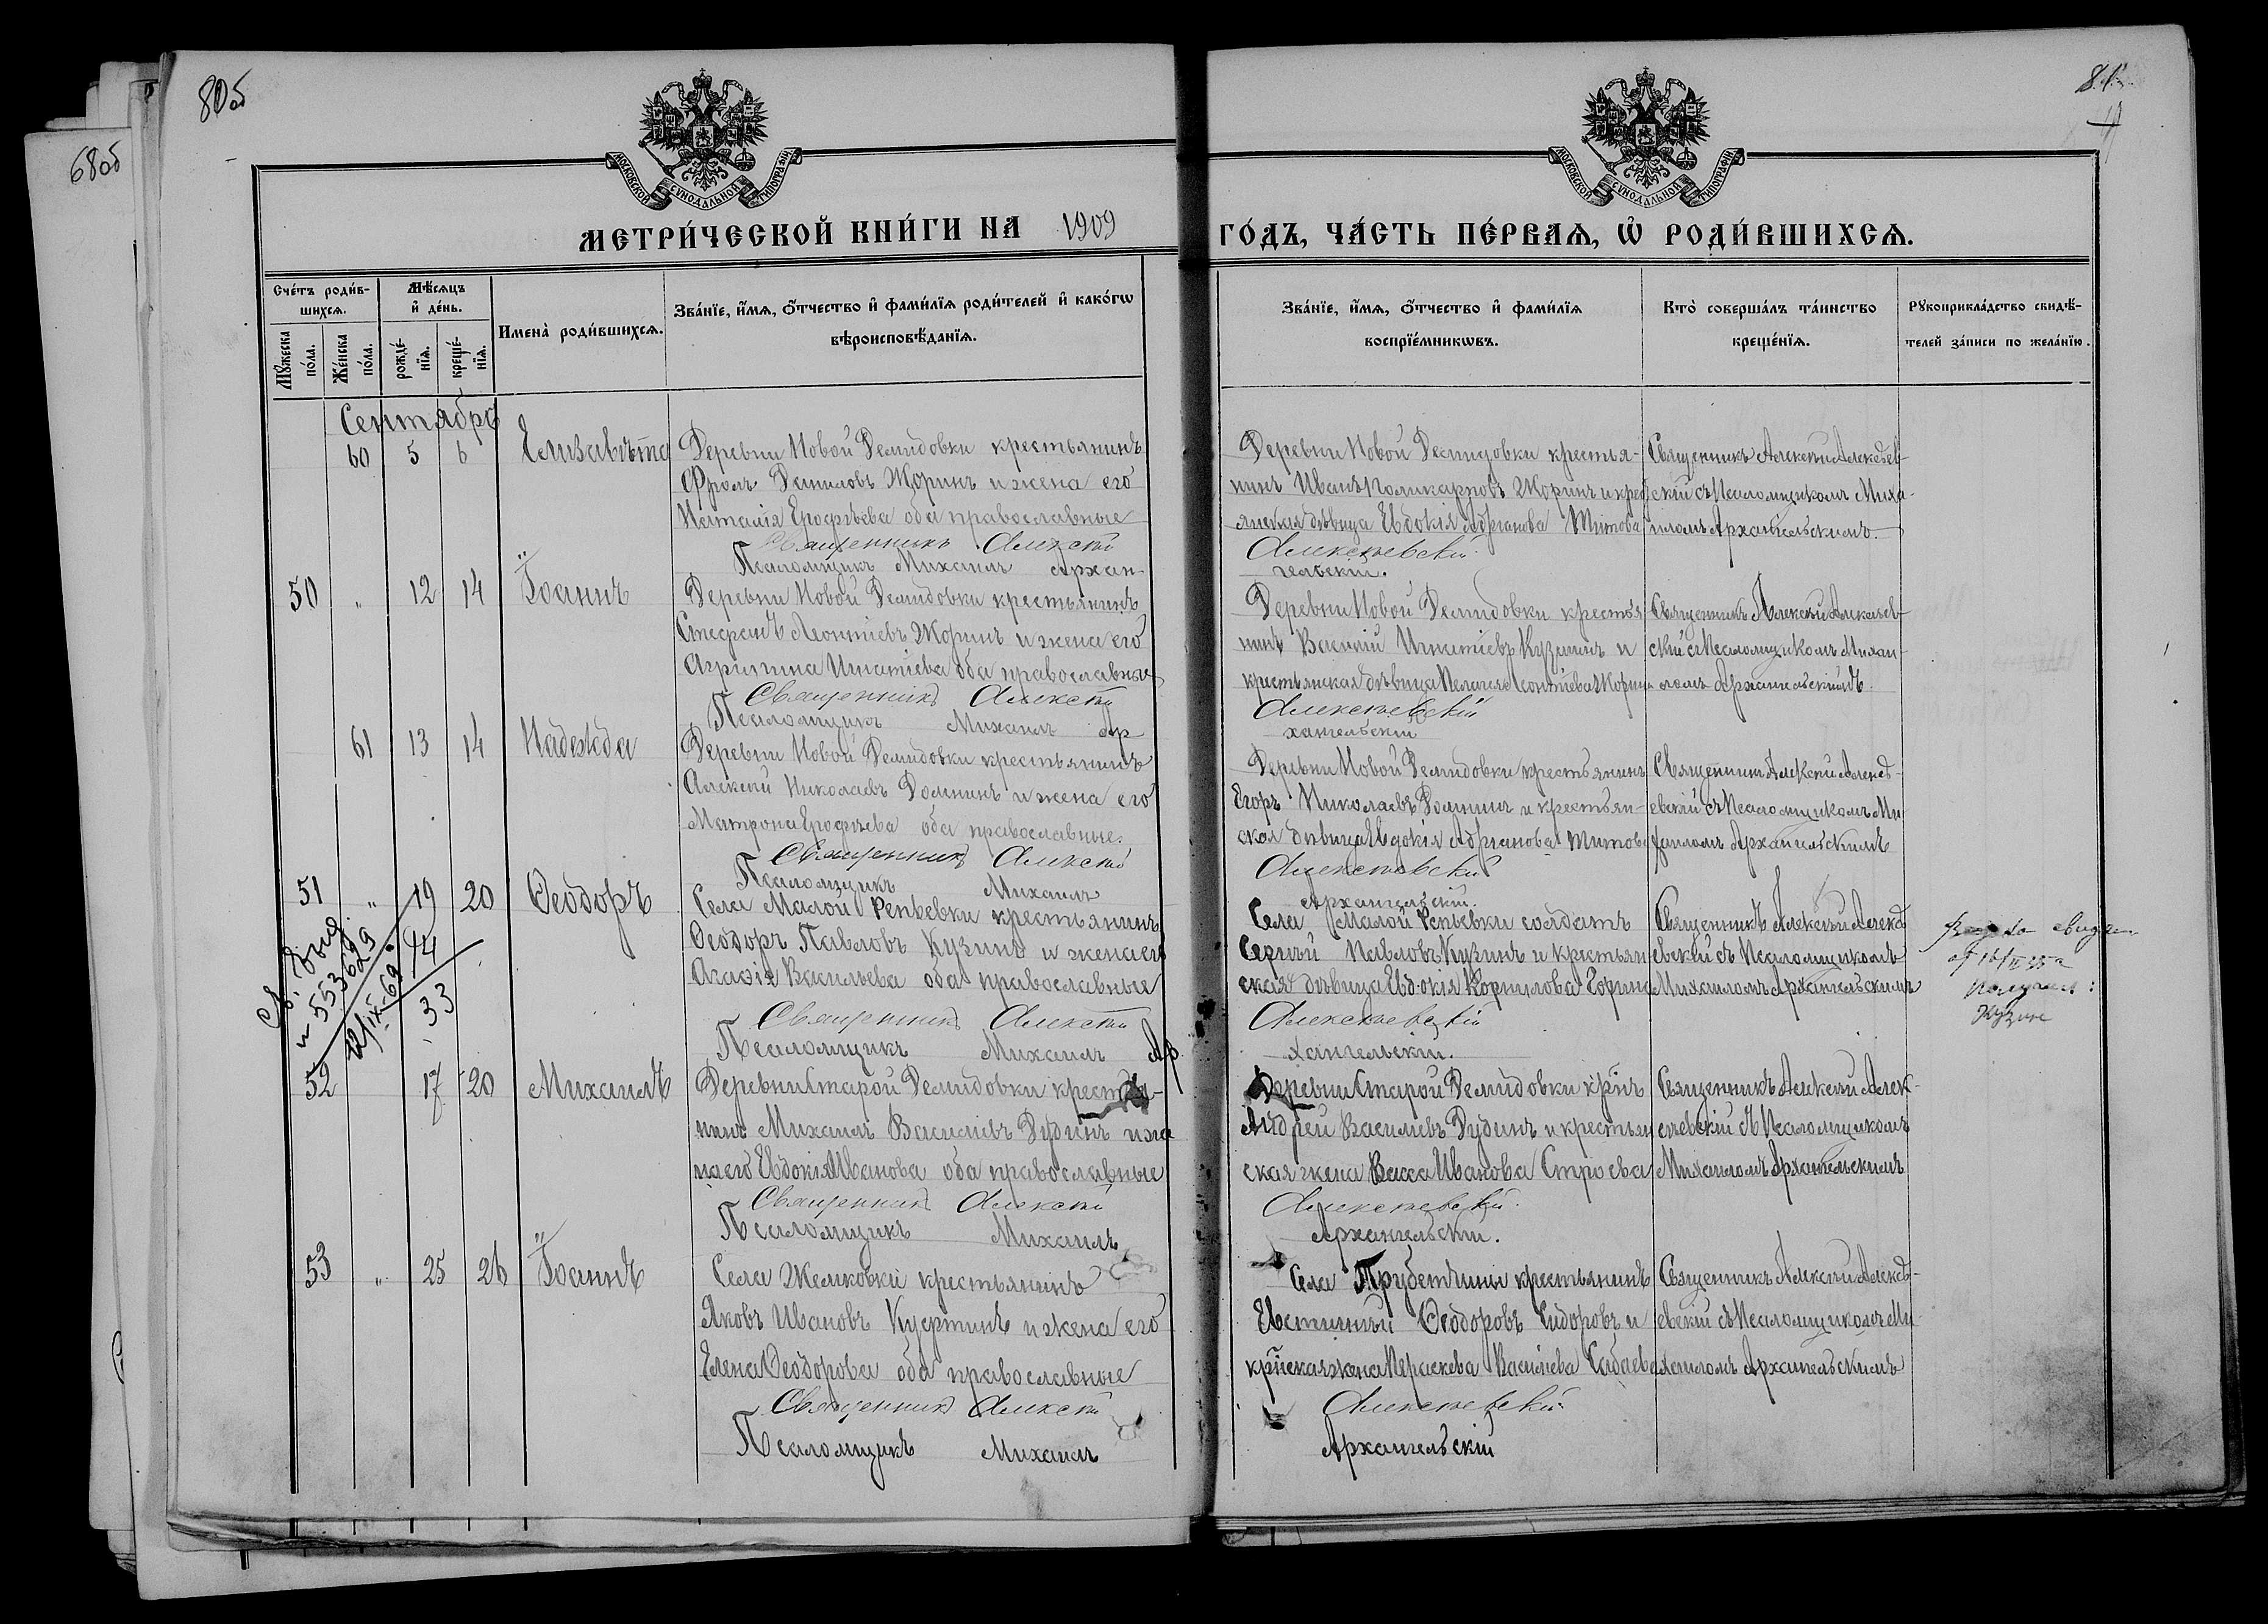 80об
68об
81.
МОСКОВСКОЙ СѴНОДАЛЬНОЙ ТИПОГРАФІИ
МОСКОВСКОЙ СѴНОДАЛЬНОЙ ТИПОГРАФІИ
МЕТРИ́ЧЕСКОЙ КНИ́ГИ НА 1909
ГО́ДЪ, ЧА́СТЬ ПЕ́РВАѦ, Ѽ РОДИ́ВШИХСѦ.
Сче́тъ роди́в-
шихсѧ.
Мꙋ́жеска по́ла.
Же́нска по́ла.
Мѣ́сѧцъ
и҆ де́нь.
рожде́-
нїѧ.
креще́-
нїѧ.
Имена̀ роди́вшихсѧ.
Зва́нїе, и҆́мѧ, ѻ҆́тчество и҆ фами́лїѧ роди́телей и҆ како́гѡ
вѣроисповѣ́данїѧ.
Зва́нїе, и҆́мѧ, ѻ҆́тчество и҆ фами́лїѧ
воспрїе́мникѡвъ.
Кто̀ соверша́лъ та́инство
креще́нїѧ.
Рꙋкоприкла́дство свидѣ́-
телей за́писи по жела́нїю.
Сентябрь
60 5 6 Елизавѣта
Деревни Новой Демидовки крестьянинъ
Фролъ Даниловъ Жоринъ и жена его
Наталія Ерофѣева оба православные
Священникъ Алексѣй
Псаломщикъ Михаилъ Архан-
Деревни Новой Демидовки крестья-
нинъ Иванъ Поликарповъ Жоринъ и крес
янская дѣвица Евдокія Адріанова Титова
Алексѣевскій.
гельскій.
Священникъ Алексѣй Алексѣев-
скій съ Псаломщикомъ Миха-
иломъ Архангельскимъ.
50 " 12 14 Іоаннъ
Деревни Новой Демидовки крестьянинъ
Стефанъ Леонтіевъ Жоринъ и жена его
Агрипина Игнатіева оба православные
Священникъ Алексѣй
Псаломщикъ Михаилъ Ар-
Деревни Новой Демидовки крестья
нинъ Василій Игнатіевъ Кузминъ и
крестьянская дѣвица Пелагея Леонтіева Жорин
Алексѣевскій
хангельскій
Священникъ Алексѣй Алексѣев-
скій съ Псаломщикомъ Михаи-
ломъ Архангельскимъ.
61 13 14 Надежда
Деревни Новой Демидовки крестьянинъ
Алексѣй Николаевъ Домнинъ и жена его
Матрона Ерофѣева оба православные.
Священникъ Алексѣй
Псаломщикъ Михаилъ
Деревни Новой Демидовки крестьянинъ
Егоръ Николаевъ Домнинъ и крестьян-
ская дѣвица Евдокія Адріанова Титова
Алексѣевскій
Архангельскій.
Священникъ Алексѣй Алексѣ-
евскій съ Псаломщикомъ Ми
хаиломъ Архангельскимъ
51 " 19 20 Ѳеодоръ
Села Малой Репьевки крестьянинъ
Ѳеодоръ Павловъ Кузинъ и жена его
Агаѳія Васильева оба православные
Священникъ Алексѣй
Псаломщикъ Михаилъ Ар
Села Малой Репьевки солдатъ
Сергѣй Павловъ Кузинъ и крестьян
ская дѣвица Евдокія Корнилова
Алексѣевскій
хангельскій.
Священникъ Алексѣй Алексѣ
евскій съ Псаломщикомъ
Михаиломъ Архангельскимъ
№ 553629
12/IX-69
14
33
52 17 20 Михаилъ
Деревни Старой Демидовки крестья-
нинъ Михаилъ Василіевъ Дудинъ и же
на его Евдокія Иванова оба православные
Священникъ Алексѣй
Псаломщикъ Михаилъ
Деревни Старой Демидовки кр̃нъ
Андрей Василіевъ Дудинъ и крестьян
ская жена Васса Иванова Строева
Алексѣевскій.
Архангельскій.
Священникъ Алексѣй Алек-
сѣевскій съ Псаломщикомъ
Михаиломъ Архангельскимъ
53 " 25 26 Іоаннъ
Села Жмаковки крестьянинъ
Яковъ Ивановъ и жена его
Елена Ѳеодорова оба православные
Священникъ Алексѣй
Псаломщикъ Михаилъ
Села Трубетчины крестьянинъ
Евстигнѣй Ѳеодоровъ Сидоровъ и
кр̃нская жена Параскева Василіева
Алексѣевскій.
Архангельскій
Священникъ Алексѣй Алексѣ-
евскій съ Псаломщикомъ Ми-
хаиломъ Архангельскимъ